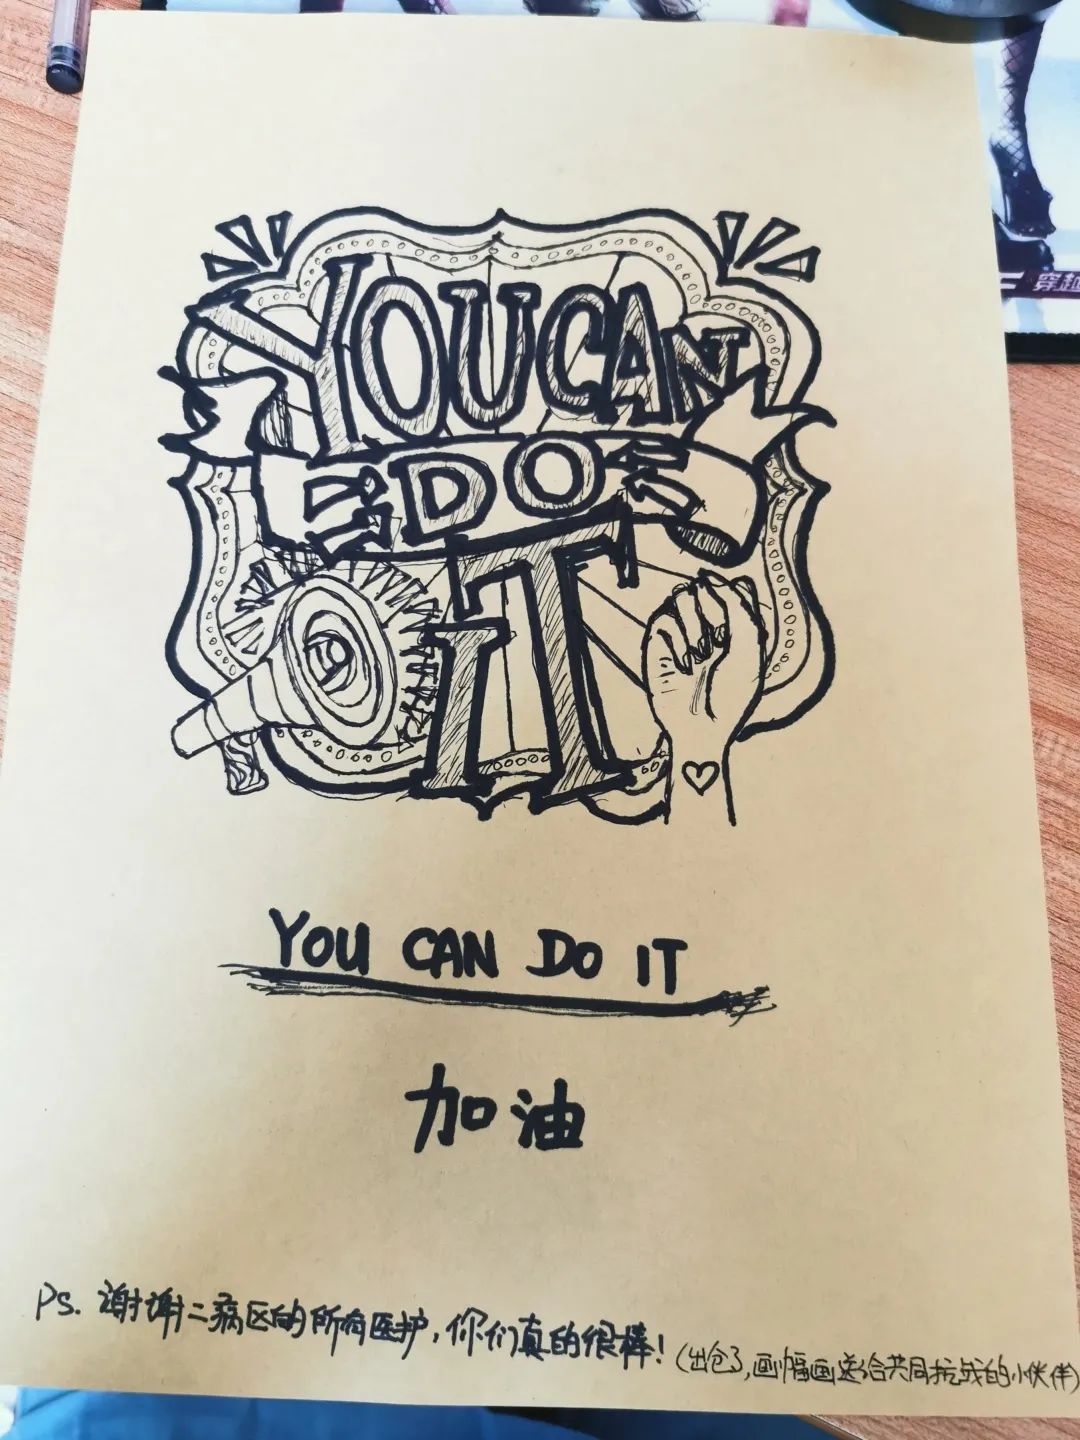 穿越
YOU CAN
DO
IT
YOU CAN DO IT
加油
Ps. 谢谢二病区的所有医护，你们真的很棒！(出仓了，画幅画送给共同抗战的小伙伴)